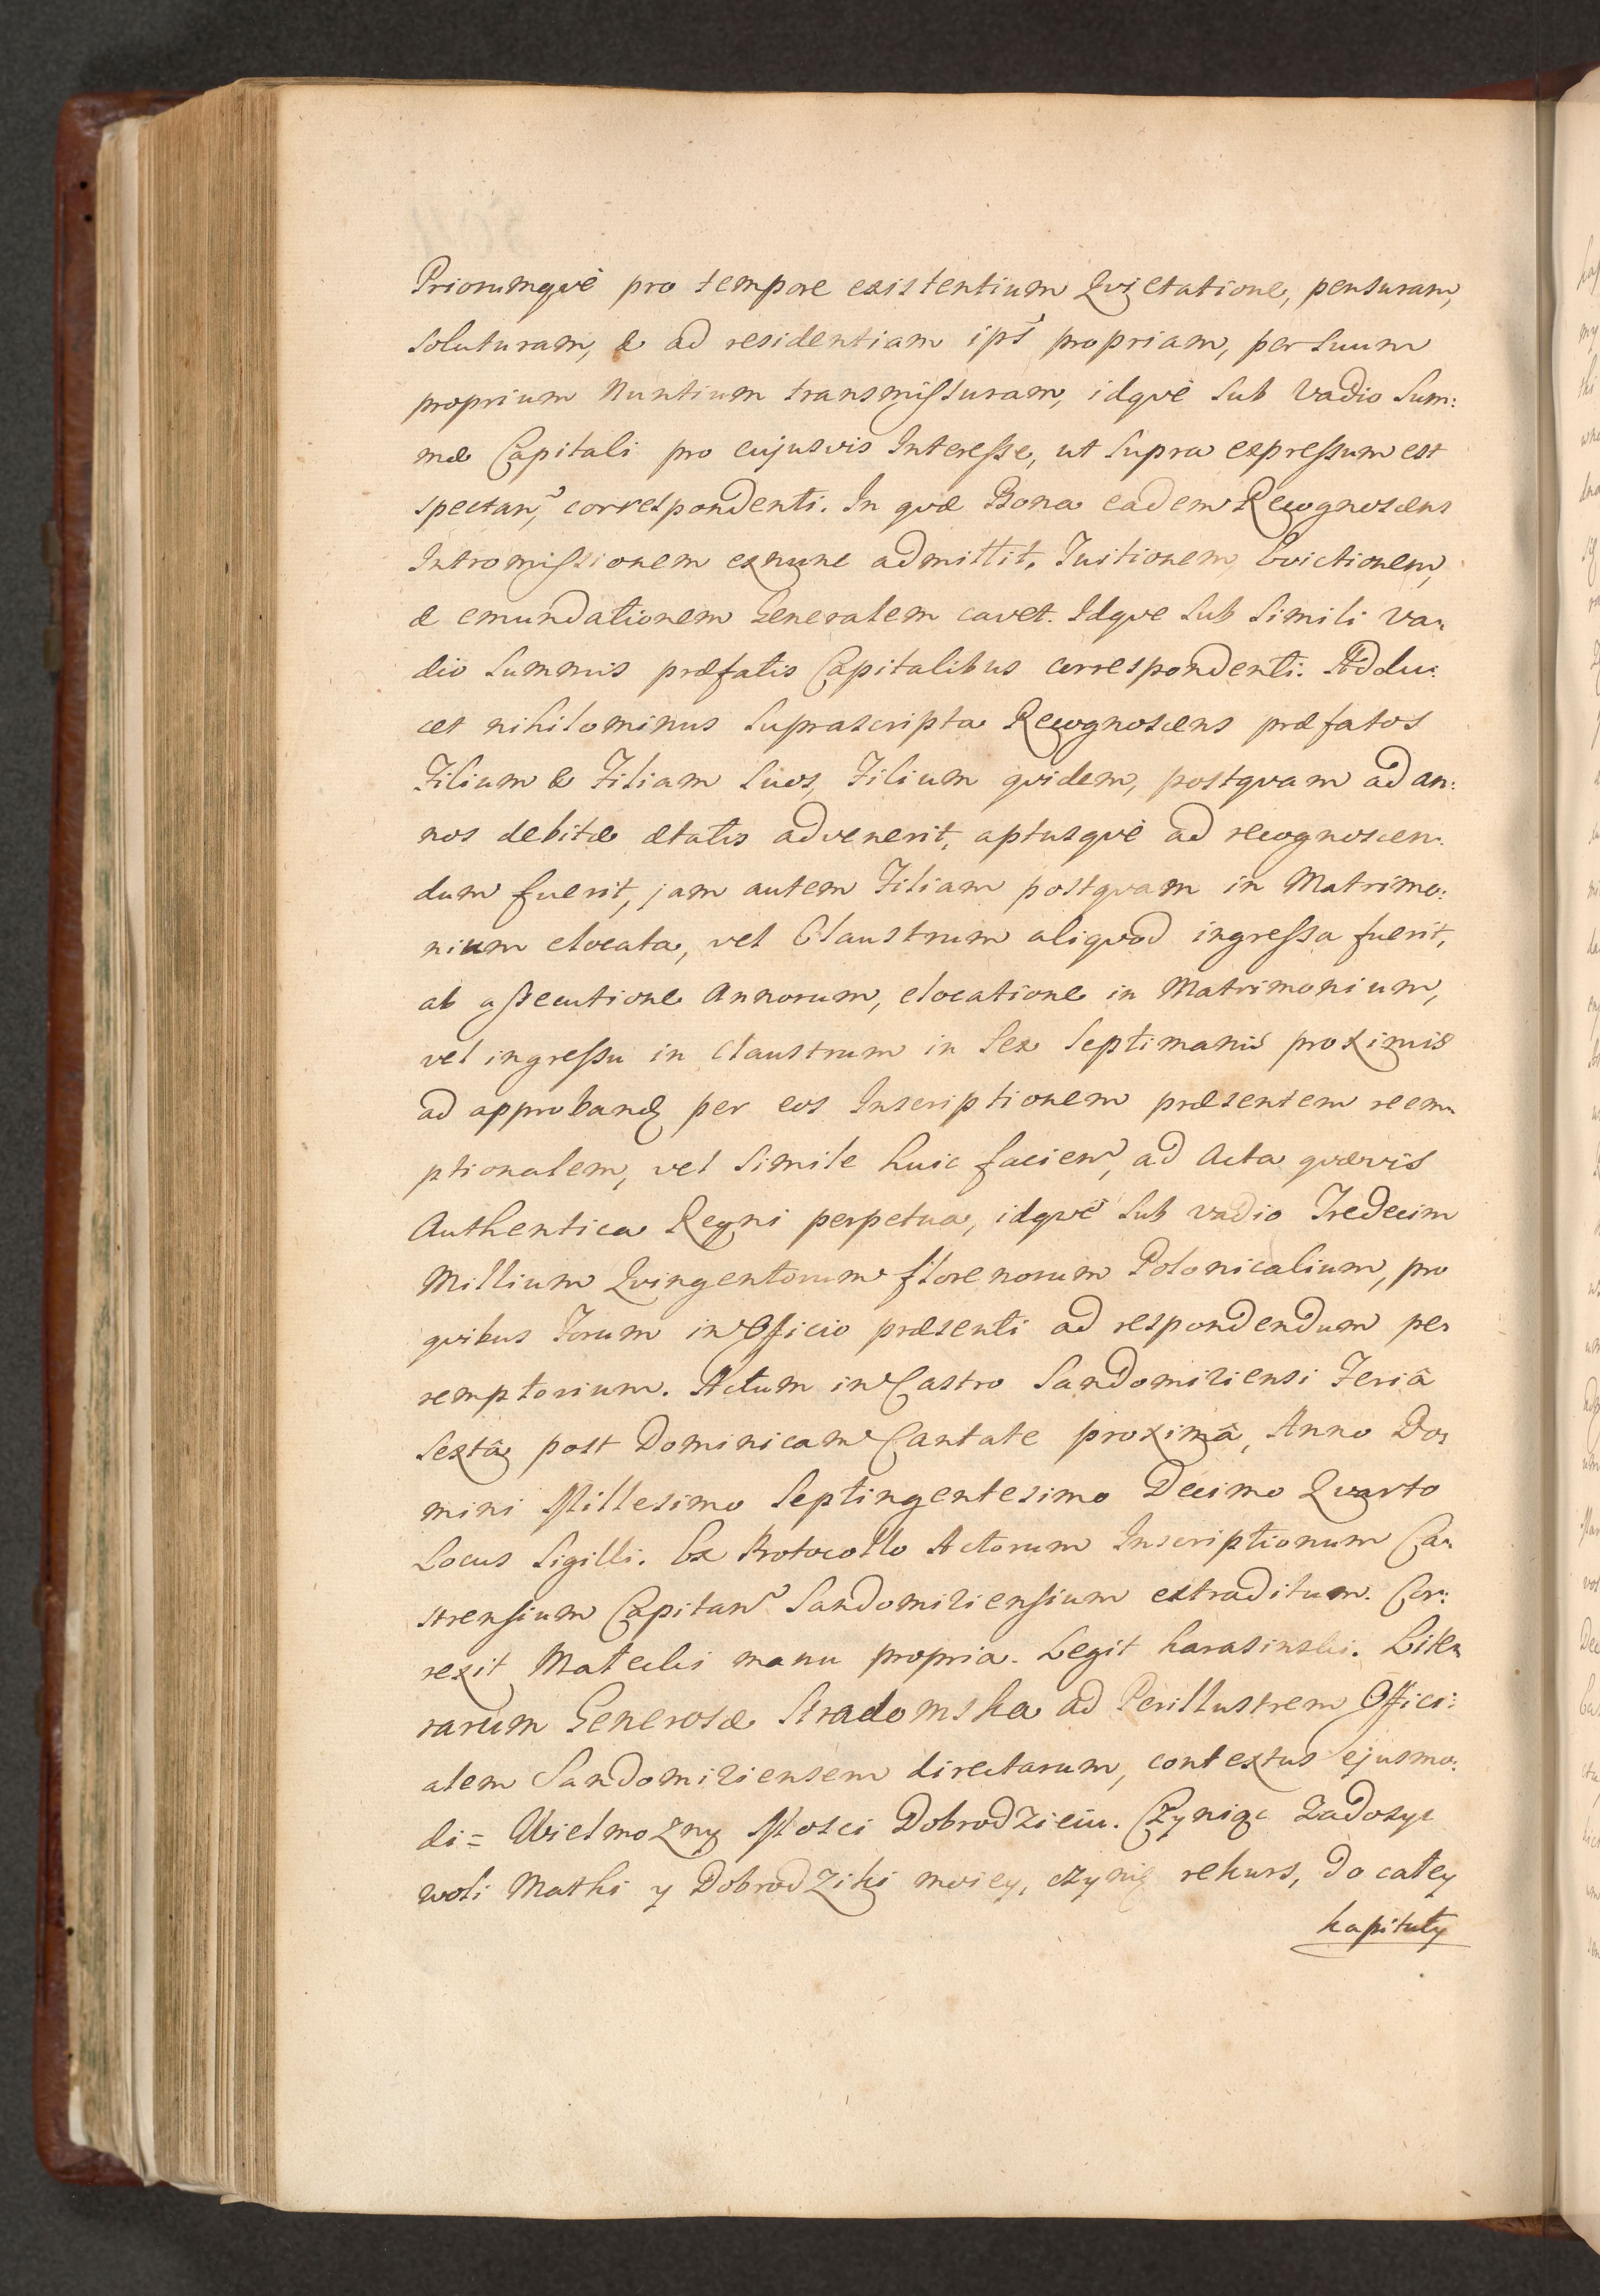 Priorumqvè pro tempore existentium Qvietatione, pensuram,
soluturam, & ad residentiam ips̃ propriam, per suum
proprium Nuntium transmissuram, idqvè sub Vadio Sum:
mæ Capitali pro cujusvis Interesse, ut supra expressum est
spectañ, correspondenti. In qvæ Bona eadem Recognoscens
Intromissionem exnunc admittit, Tuitionem, Evictionem,
& emundationem Generalem cavet. Idqve sub simili va:
dio Summis præfatis Capitalibus correspondenti. Addu:
cet nihilominus suprascripta Recognoscens præfatos
Filium & Filiam suos, Filium qvidem, postqvam ad an:
nos debitæ ætatis advenerit, aptusqvè ad recognoscen:
dum fuerit, jam autem Filiam postqvam in Matrimo:
nium elocata, vel Claustrum aliqvod ingressa fuerit,
ab assecutione Annorum, elocatione in Matrimonium,
vel ingressu in Claustrum in Sex Septimanis proximis
ad approband per eos Inscriptionem præsentem reem:
ptionalem, vel simile huic facieñ, ad Acta qvævis
Authentica Regni perpetua, idqvè sub vadio Tredecim
Millium Qvingentorum florenorum Polonicalium, pro
qvibus Forum in Officio præsenti ad respondendum pe
remptorium. Actum in Castro Sandomiriensi Feriâ
Sextâ post Dominicam Cantate proximâ, Anno Do:
mini Millesimo Septingentesimo Decimo Qvarto
Locus Sigilli. Ex Protocollo Actorum Inscriptionum Ca:
strensium Capitañ Sandomiriensium extraditum. Cor:
rexit manu propria. Legit Karasinski. Lite:
rarum Generosæ Stradomska ad Perillustrem Offici:
alem Sandomiriensem directarum, contextus ejusmo:
di = Wielmozny Mosci Dobrodzieiu. Czyniąc zadosyc
woli Matki y Dobrodziki moiey, czynię rekurs, do całey
kapituły